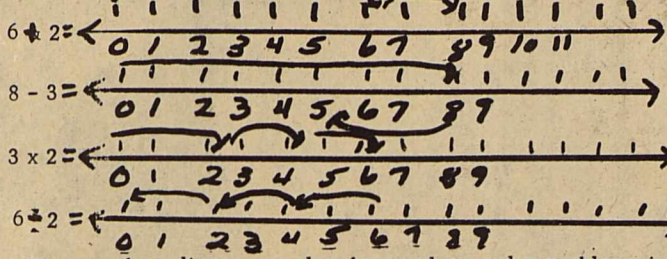 6 + 2 =
0 1 2 3 4 5 6 7 8 9 10 11
8 - 3 =
0 1 2 3 4 5 6 7 8 9
3 x 2 =
0 1 2 3 4 5 6 7 8 9
6 ÷ 2 =
0 1 2 3 4 5 6 7 8 9